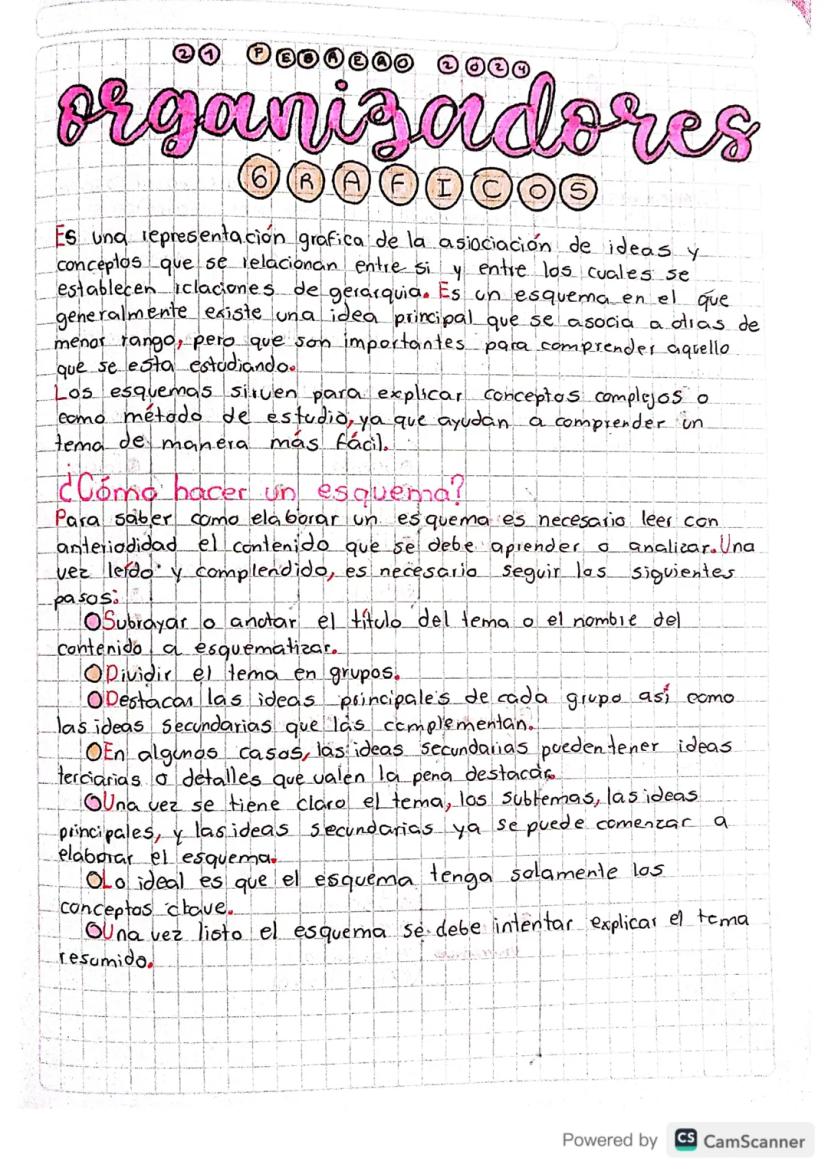 21 FEBRERO 2024
organizadores
GRAFICOS
Es una representación grafica de la asiociación de ideas y
conceptos que se relacionan entre si y entre los cuales se
establecen relaciones de gerarquia. Es un esquema en el que
generalmente existe una idea principal que se asocia a otras de
menor rango, pero que son importantes para comprender aquello
que se esta estudiando.
Los esquemas sirven para explicar conceptos complejos o
como método de estudio, ya que ayudan a comprender un
tema de manera más fácil.
¿Cómo hacer un esquema?
Para saber como elaborar un esquema es necesario leer con
anteriodidad el contenido que se debe aprender o analizar. Una
vez leído y complendido, es necesario seguir los siguientes
pasos:
Subrayar o anotar el título del tema o el nombre del
contenido a esquematizar.
Dividir el tema en grupos.
Destacar las ideas principales de cada grupo así como
las ideas secundarias que las complementan.
En algunos casos, las ideas secundarias pueden tener ideas
terciarias o detalles que valen la pena destacar.
Una vez se tiene claro el tema, los subtemas, las ideas
principales, y las ideas secundarias ya se puede comenzar a
elaborar el esquema.
Lo ideal es que el esquema tenga solamente los
conceptos clave.
Una vez listo el esquema se debe intentar explicar el tema
resumido.
Powered by CS CamScanner